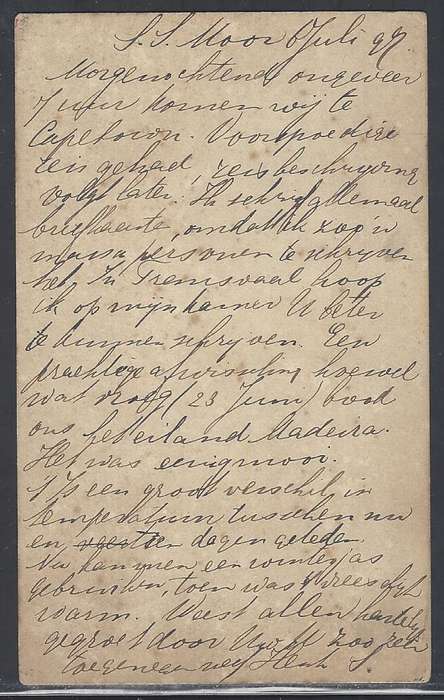 S.S. Moor 6 Juli 97.
Morgenochtend ongeveer
7 uur komen wij te
Capetown. Voorspoedige
reis gehad, reisbeschrijving
volgt later. Ik schrijf allemaal
briefkaarten, omdat ik zoo'n
massa personen te schrijven
heb. In Transvaal hoop
ik op mijn kamer U beter
te kunnen schrijven. Een
prachtige afwisseling hoewel
wat vroeg (23 Juni) bood
ons het eiland Madeira.
Het was eenig mooi.
't Is een groot verschil in
temperatuur tusschen nu
en dagen geleden.
Nu kan men een winterjas
gebruiken, toen was 't vreeselijk
warm. Weest allen hartelijk
gegroet door Uw zoo zeer
toegenegen neef Henk